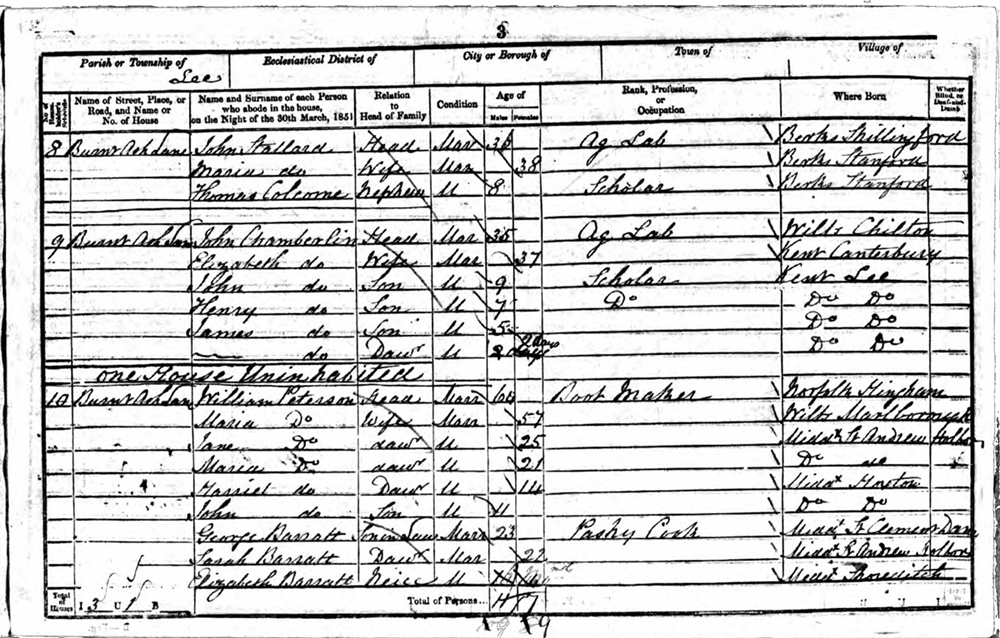 3
Parish or Township of Ecclesiastical District of City or Borough of Town of Village of
Lee
Name of Street, Place, or Road, and Name or No. of House Name and Surname of each Person who abode in the house, on the Night of the 30th March, 1851 Relation to Head of Family Condition Age of Males Females Rank, Profession, or Occupation Where Born Whether Blind, or Deaf-and-Dumb
8 Burnt Ash Lane John Stallard Head Mar 36 Ag Lab Berks Shillingford
Maria do Wife Mar 38 Berks Stanford
Thomas Colcome Nephew U 8 Scholar Berks Stanford
9 Burnt Ash Lane John Chamberlin Head Mar 35 Ag Lab Wilts Chilton
Elizabeth do Wife Mar 37 Kent Canterbury
John do Son U 9 Scholar Kent Lee
Henry do Son U 7 Do Do Do
James do Son U 5 Do Do
do Dawr U 2 days Do Do
one House Uninhabited
10 Burnt Ash Lane William Peterson Head Marr 60 Boot Maker Norfolk Hingham
Maria Do Wife Marr 57 Wilts Marlborough
Jane Do dawr U 25 Middx St Andrew Holborn
Maria Do dawr U 21 Do do
Harriet do Dawr U 14 Middx Hoxton
John do Son U 11 Do Do
George Barratt Son in Law Marr 23 Pastry Cook Middx St Clement Danes
Sarah Barratt Dawr Mar 22 Middx St Andrew Holborn
Elizabeth Barratt Neice U Middx Shoreditch
Total of Houses I 3 U 1 B Total of Persons...